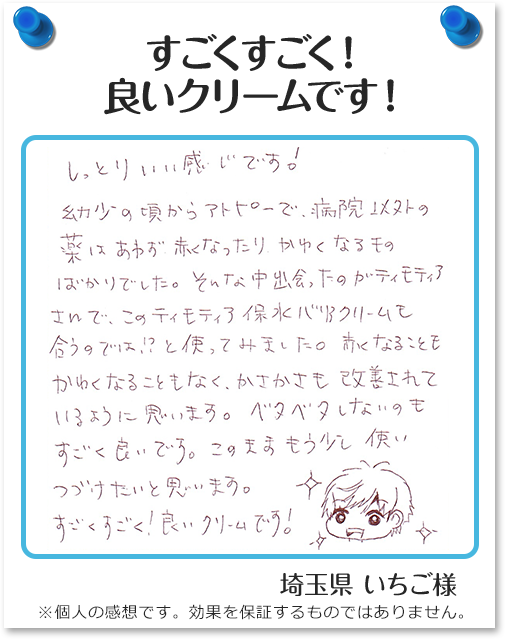 すごくすごく！
良いクリームです！
しっとりいい感じです！
幼少の頃からアトピーで、病院以外の
薬はあわず赤くなったり、かわくなるもの
ばかりでした。そんな中出会ったのがティモティア
さんで、このティモティア保水バリアクリームも
合うのでは！？と使ってみました。赤くなることも
かわくなることもなく、かさかさも改善されて
いるように思います。ベタベタしないのも
すごく良いです。このままもう少し使い
つづけたいと思います。
すごくすごく！良いクリームです！
埼玉県 いちご様
※個人の感想です。効果を保証するものではありません。